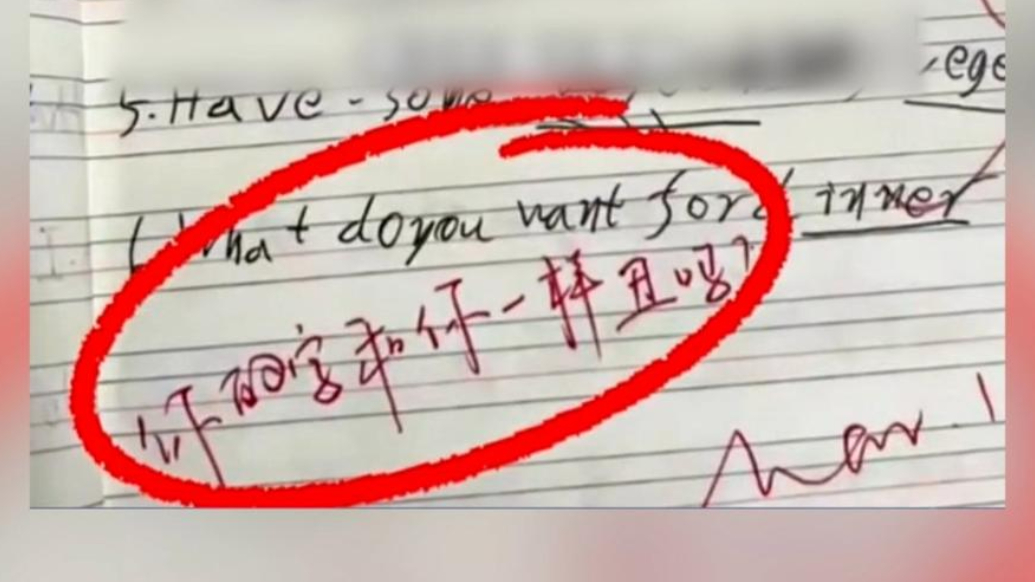 5. Have some
What do you want for dinner
你的字和你一样丑吗?
Nov. 1